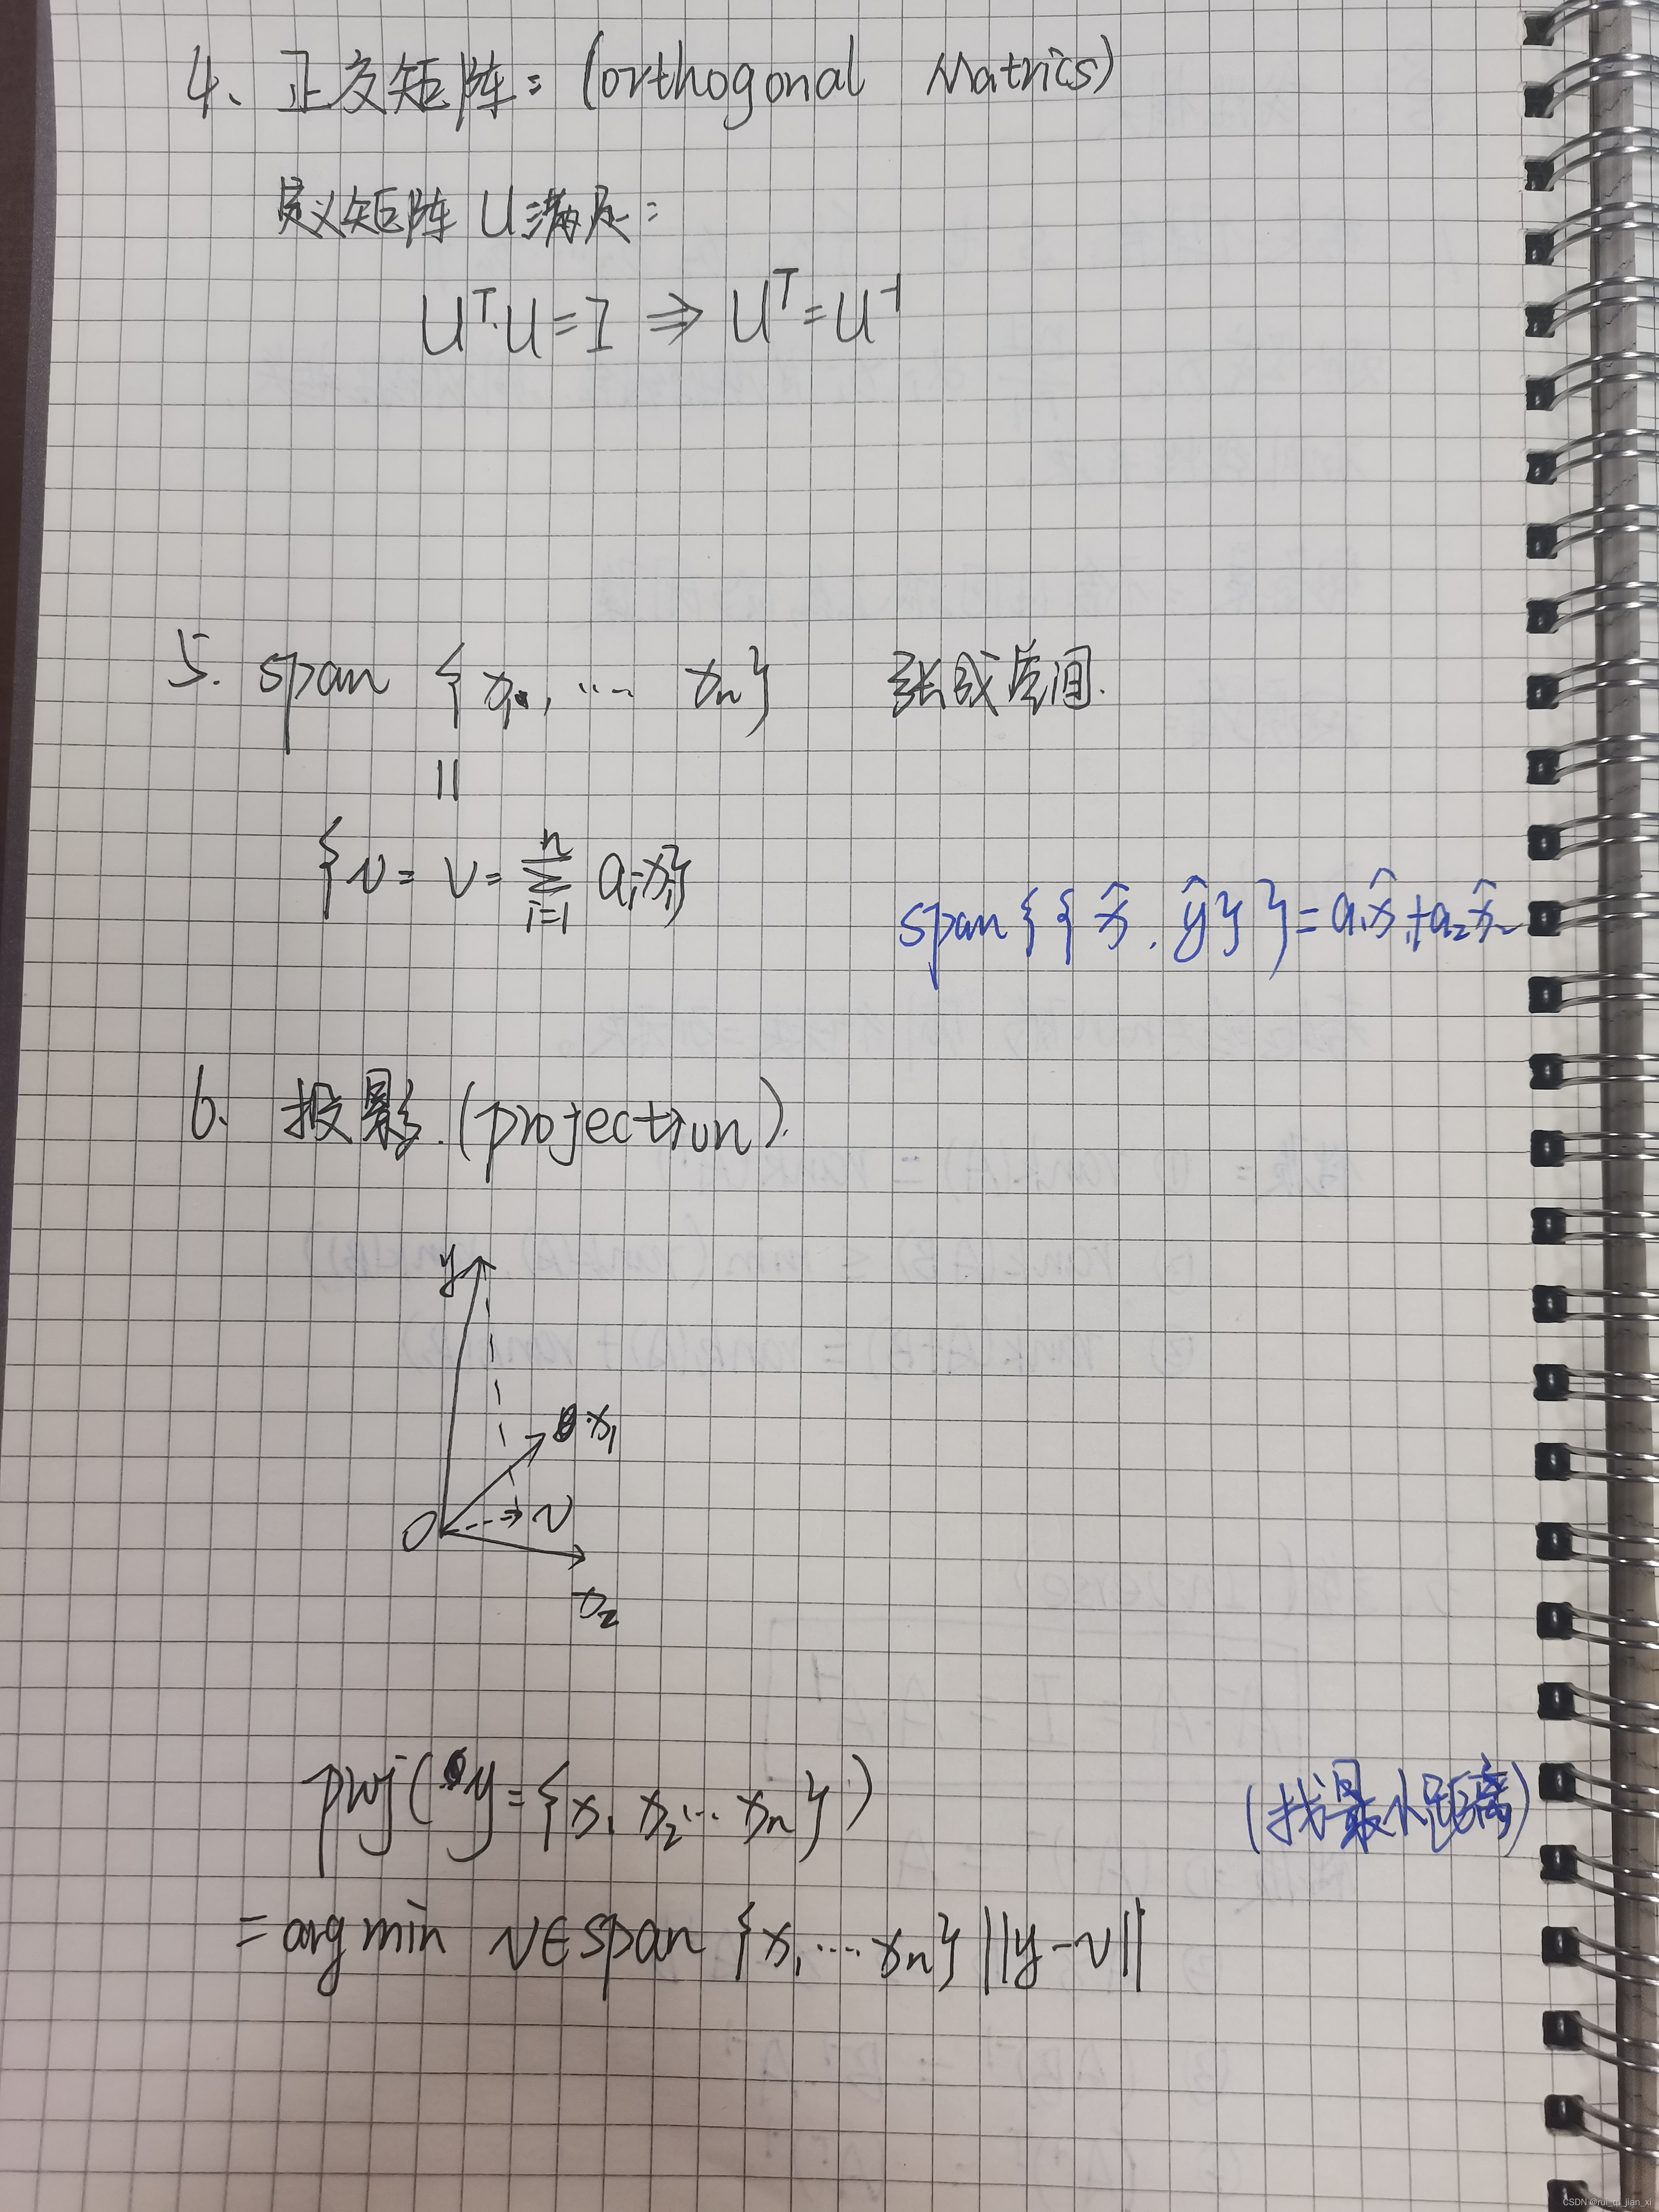 4、正交矩阵：(orthogonal Matrics)
定义矩阵 U 满足：
Uᵀ·U = I ⇒ Uᵀ = U⁻¹
5. span {x₁, … xₙ} 张成空间.
||
{v: v = ∑ⁿᵢ₌₁ aᵢxᵢ}
span{{x̂, ŷ}} = a₁x̂₁ + a₂x̂₂
6. 投影.(projection).
y
x₁
O
v
x₂
proj(y = {x₁ x₂… xₙ}) (找最小距离)
= arg min v∈span {x₁ … xₙ} ||y-v||
CSDN @rui_qi_jian_xi